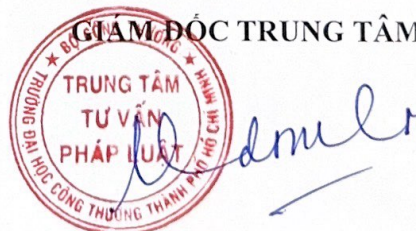 GIÁM ĐỐC TRUNG TÂM
★ BỘ CÔNG THƯƠNG ★
TRƯỜNG ĐẠI HỌC CÔNG THƯƠNG THÀNH PHỐ HỒ CHÍ MINH
TRUNG TÂM
TƯ VẤN
PHÁP LUẬT